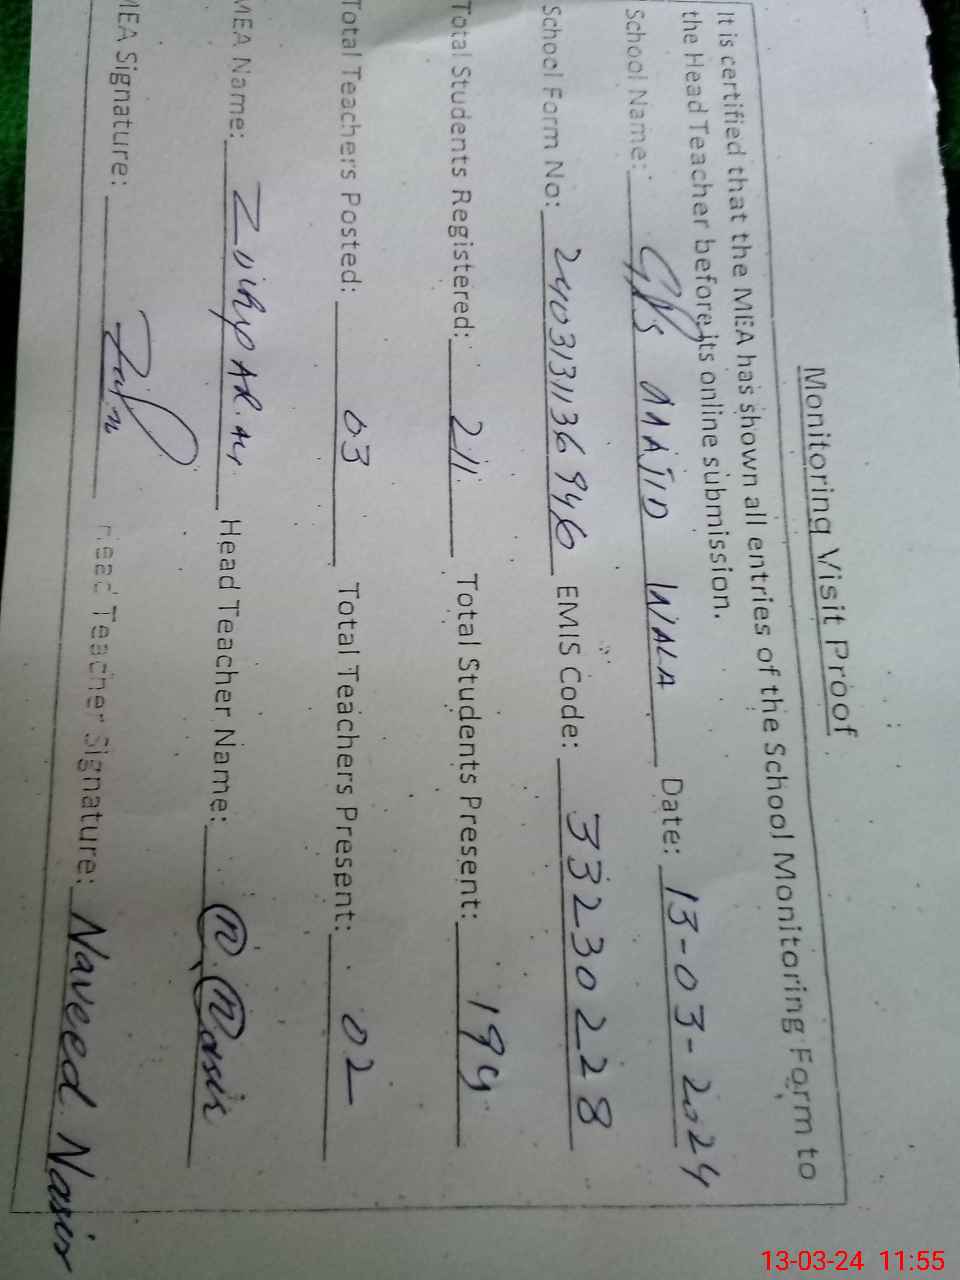 Monitoring Visit Proof
It is certified that the MEA has shown all entries of the School Monitoring Form to
the Head Teacher before its online submission.
School Name: GPS MAJID WALA Date: 13-03-2024
School Form No: 24031311369446 EMIS Code: 33230228
Total Students Registered: 211 Total Students Present: 194
Total Teachers Posted: 03 Total Teachers Present: 02
MEA Name: Head Teacher Name: N. Nasir
MEA Signature: Head Teacher Signature: Naveed Nasir
13-03-24 11:55